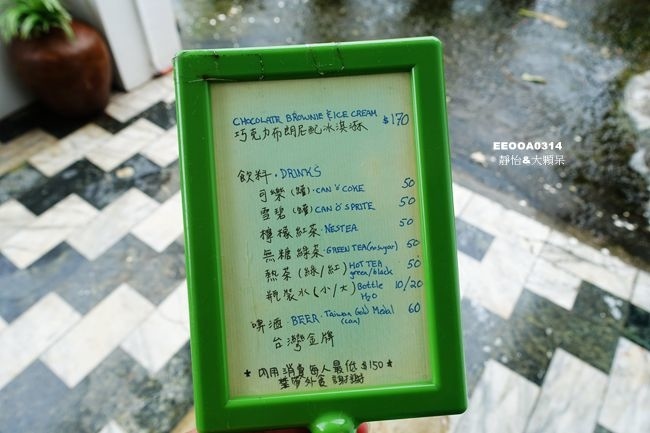 CHOCOLATE BROWNIE & ICE CREAM
巧克力布朗尼配冰淇淋 $170
飲料·DRINKS
可樂(罐)·CAN O' COKE 50
雪碧(罐)CAN O' SPRITE 50
檸檬紅茶·NESTEA 50
無糖綠茶·GREEN TEA(no sugar) 50
熱茶(綠/紅)HOT TEA green/black 50
瓶裝水(小/大)Bottle H2O 10/20
啤酒·BEER·Taiwan Gold Medal (can) 60
台灣金牌
*內用消費每人最低$150*
禁帶外食 謝謝
EEOOA0314
靜怡&大顆呆